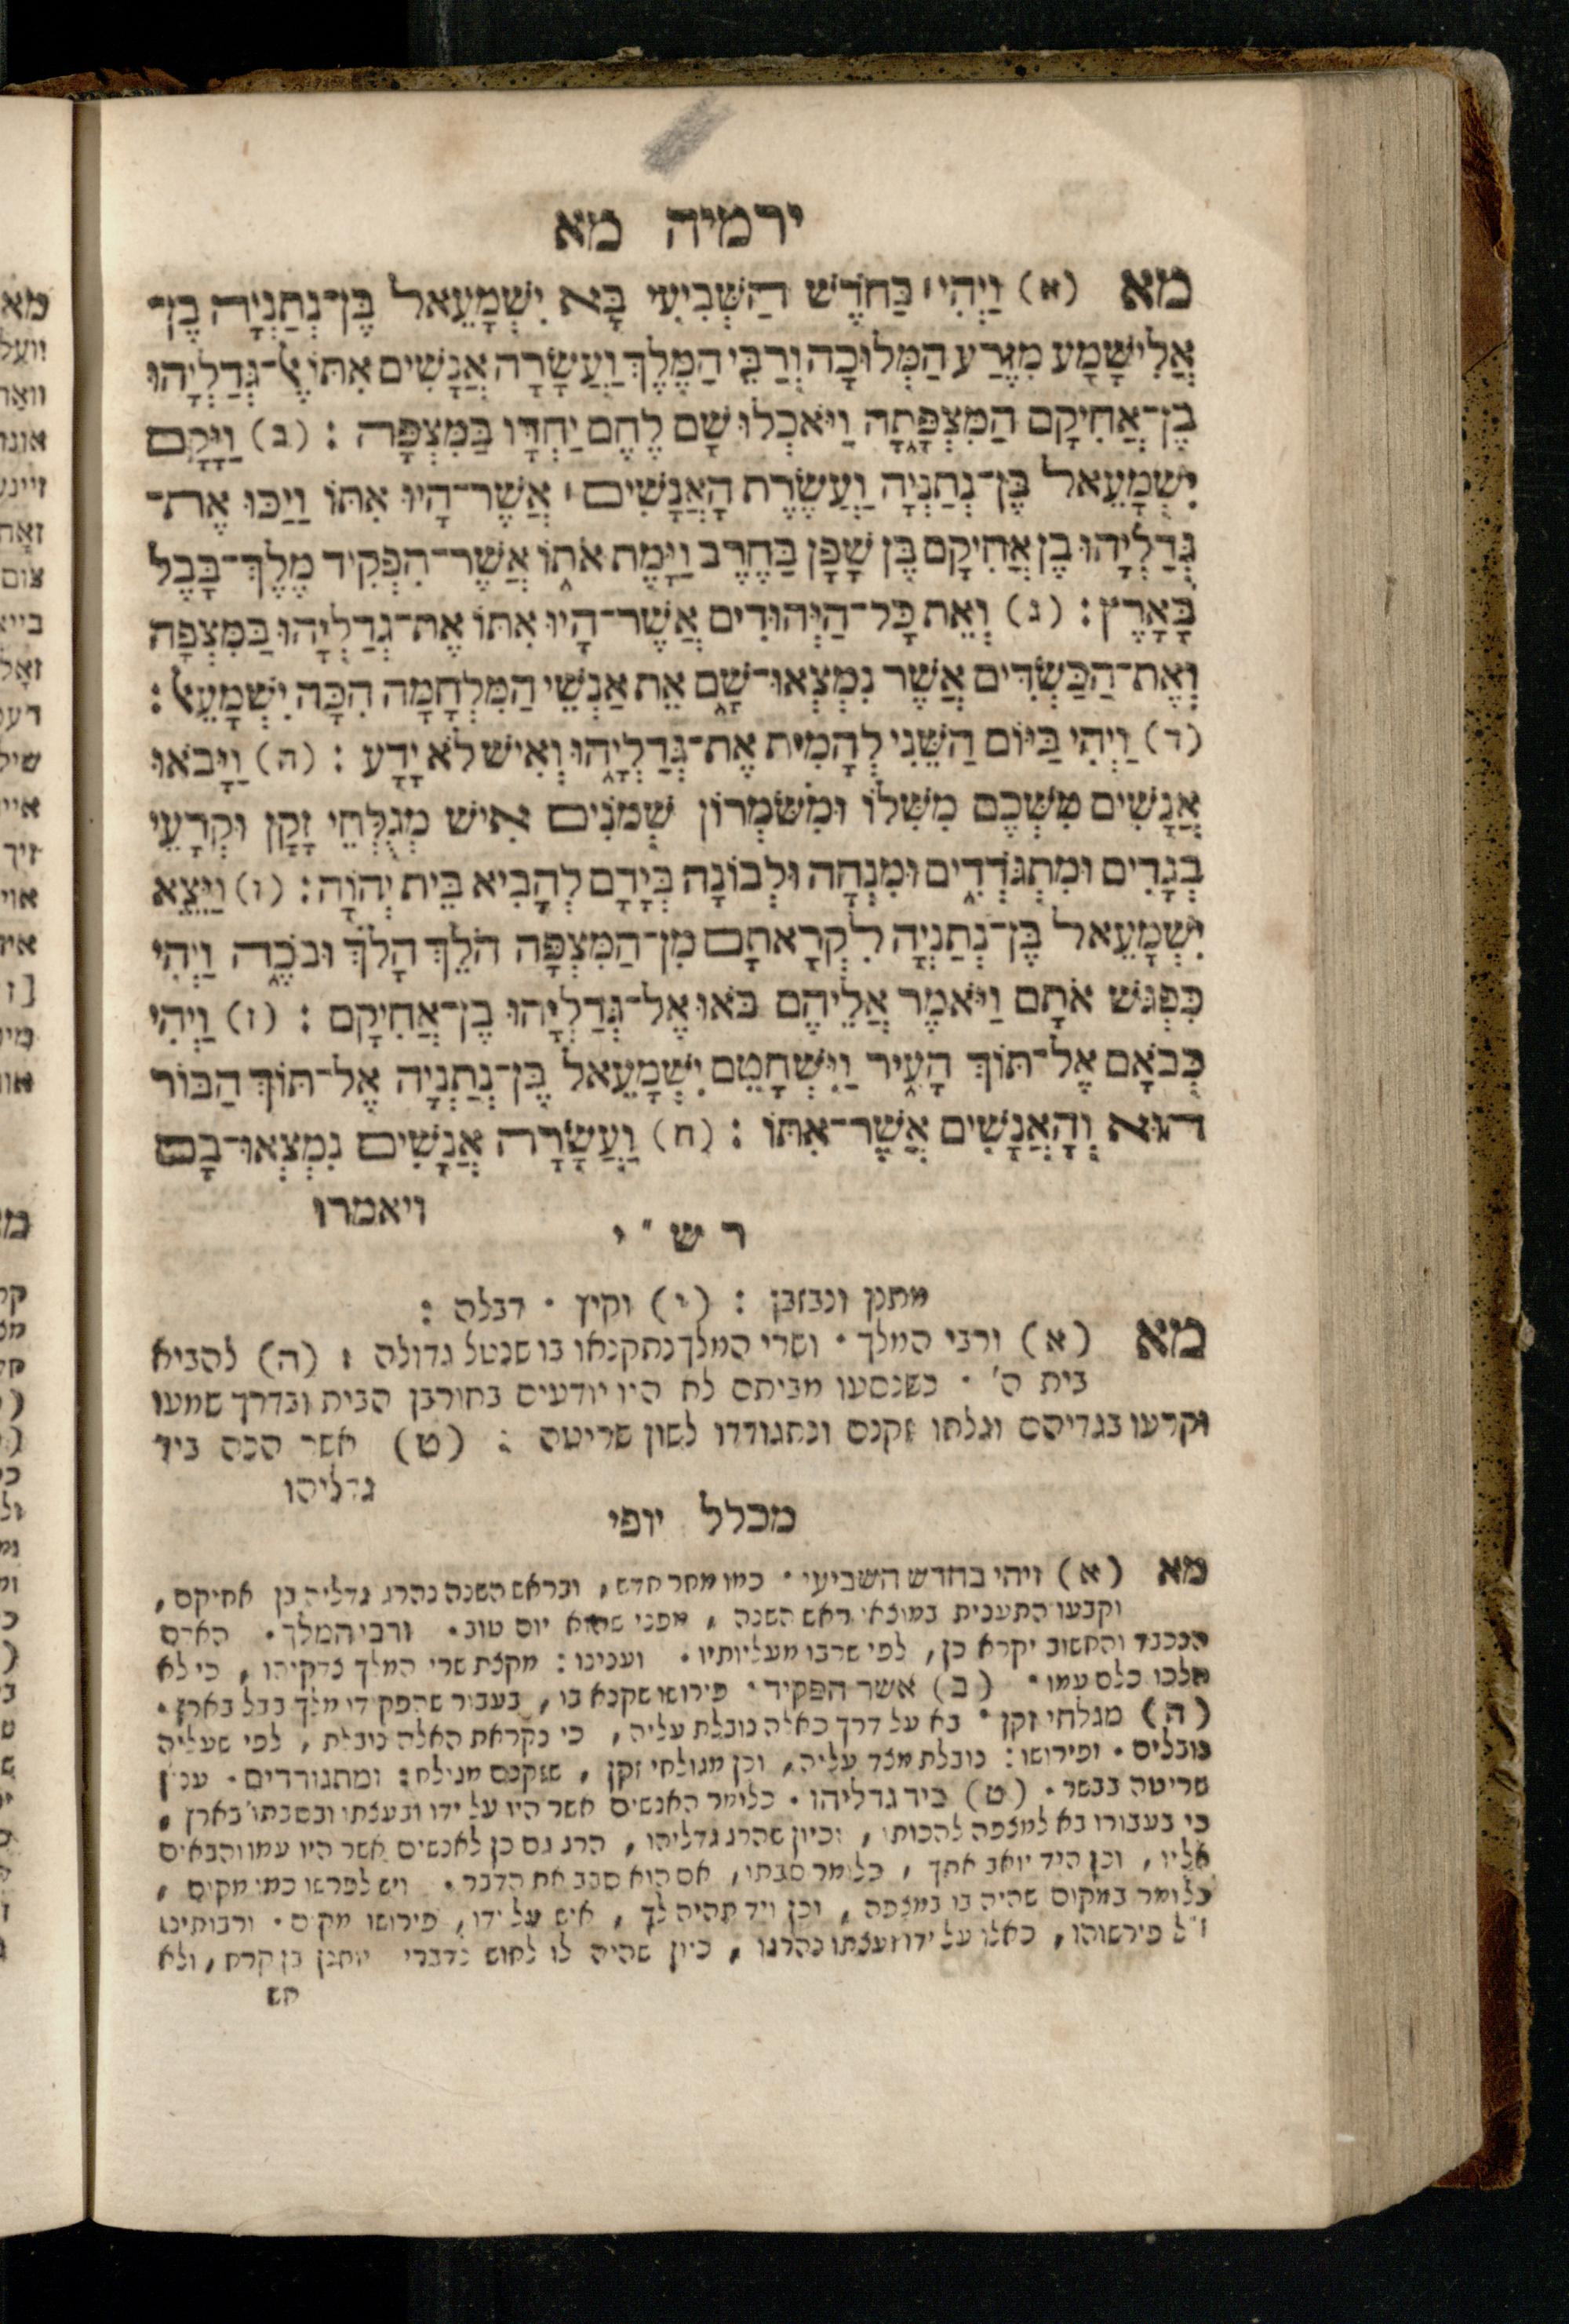 ירמיה מא
מא (א) וַיְהִי׀ בַּחֹדֶשׁ הַשְּׁבִיעִי בָּא יִשְׁמָעֵאל בֶּן־נְתַנְיָה בֶן־
אֱלִישָׁמָע מִזֶּרַע הַמְּלוּכָה וְרַבֵּי הַמֶּלֶךְ וַעֲשָׂרָה אֲנָשִׁים אִתּוֹ אֶל־גְּדַלְיָהוּ
בֶן־אֲחִיקָם הַמִּצְפָּתָה וַיֹּאכְלוּ שָׁם לֶחֶם יַחְדָּו בַּמִּצְפָּה : (ב) וַיָּקָם
יִשְׁמָעֵאל בֶּן־נְתַנְיָה וַעֲשֶׂרֶת הָאֲנָשִׁים׀ אֲשֶׁר־הָיוּ אִתּוֹ וַיַּכּוּ אֶת־
גְּדַלְיָהוּ בֶן אֲחִיקָם בֶּן שָׁפָן בַּחֶרֶב וַיָּמֶת אֹתוֹ אֲשֶׁר־הִפְקִיד מֶלֶךְ־בָּבֶל
בָּאָרֶץ : (ג) וְאֵת כָּל־הַיְּהוּדִים אֲשֶׁר־הָיוּ אִתּוֹ אֶת־גְּדַלְיָהוּ בַּמִּצְפָּה
וְאֶת־הַכַּשְׂדִּים אֲשֶׁר נִמְצְאוּ־שָׁם אֵת אַנְשֵׁי הַמִּלְחָמָה הִכָּה יִשְׁמָעֵאל :
(ד) וַיְהִי בַּיּוֹם הַשֵּׁנִי לְהָמִית אֶת־גְּדַלְיָהוּ וְאִישׁ לֹא יָדָע : (ה) וַיָּבֹאוּ
אֲנָשִׁים מִשְּׁכֶם מִשִּׁלוֹ וּמִשֹּׁמְרוֹן שְׁמֹנִים אִישׁ מְגֻלְּחֵי זָקָן וּקְרֻעֵי
בְגָדִים וּמִתְגֹּדְדִים וּמִנְחָה וּלְבוֹנָה בְּיָדָם לְהָבִיא בֵּית יְהוָֹה : (ו) וַיֵּצֵא
יִשְׁמָעֵאל בֶּן־נְתַנְיָה לִקְרָאתָם מִן־הַמִּצְפָּה הֹלֵךְ הָלֹךְ וּבֹכֶה וַיְהִי
כִּפְגֹּשׁ אֹתָם וַיֹּאמֶר אֲלֵיהֶם בֹּאוּ אֶל־גְּדַלְיָהוּ בֶן־אֲחִיקָם : (ז) וַיְהִי
כְּבוֹאָם אֶל־תּוֹךְ הָעִיר וַיִּשְׁחָטֵם יִשְׁמָעֵאל בֶּן־נְתַנְיָה אֶל־תּוֹךְ הַבּוֹר
הוּא וְהָאֲנָשִׁים אֲשֶׁר־אִתּוֹ : (ח) וַעֲשָׂרָה אֲנָשִׁים נִמְצְאוּ־בָם
ויאמרו
רש"י
מתנן ונבזבן : (י) וקיץ · דבלה :
מא (א) ורבי המלך · ושרי המלך נתקנאו בו שנטל גדולה : (ה) להביא
בית ה' · כשנסעו מביתם לא היו יודעים בחורבן הבית ובדרך שמעו
וקרעו בגדיהם וגלחו זקנם ונתגודדו לשון שריטה : (ט) אשר הכה ביד
גדליהו
מכלל יופי
מא (א) ויהי בחדש השביעי · כמו מחר חדש, ובראש השנה נהרג גדליה בן אחיקם,
וקבעו התענית במוצאי ראש השנה, מפני שהוא יום טוב · ורבי המלך · האדם
הנכבד והחשוב יקרא כן, לפי שרבו מעליותיו · וענינו : מקצת שרי המלך צדקיהו, כי לא
הלכו כלם עמו · (ב) אשר הפקיד · פירושו שקנא בו, בעבור שהפקידו מלך בבל בארץ ·
(ה) מגלחי זקן · בא על דרך כאלה נובלת עליה, כי נקראת האלה נובלת, לפי שעליה
נובלים · ופירושו : נובלת מצד עליה, וכן מגולחי זקן, שזקנם מגולח : ומתגודדים · ענין
שריטה בבשר · (ט) ביד גדליהו · כלומר האנשים אשר היו על ידו ובעצתו ובסבתו בארץ,
כי בעבורו בא למצפה להכותו, וכיון שהרג גדליהו, הרג גם כן לאנשים אשר היו עמו והבאים
אליו, וכן היד יואב אתך, כלומר סבתו, אם הוא סבב את הדבר · ויש לפרשו כמו מקום,
כלומר במקום שהיה בו במצפה, וכן ויד תהיה לך, איש על ידו, פירושו מקום · ורבותינו
ז"ל פירשוהו, כאלו על ידו ועצתו נהרגו, כיון שהיה לו לחוש לדברי יוחנן בן קרח, ולא
חש